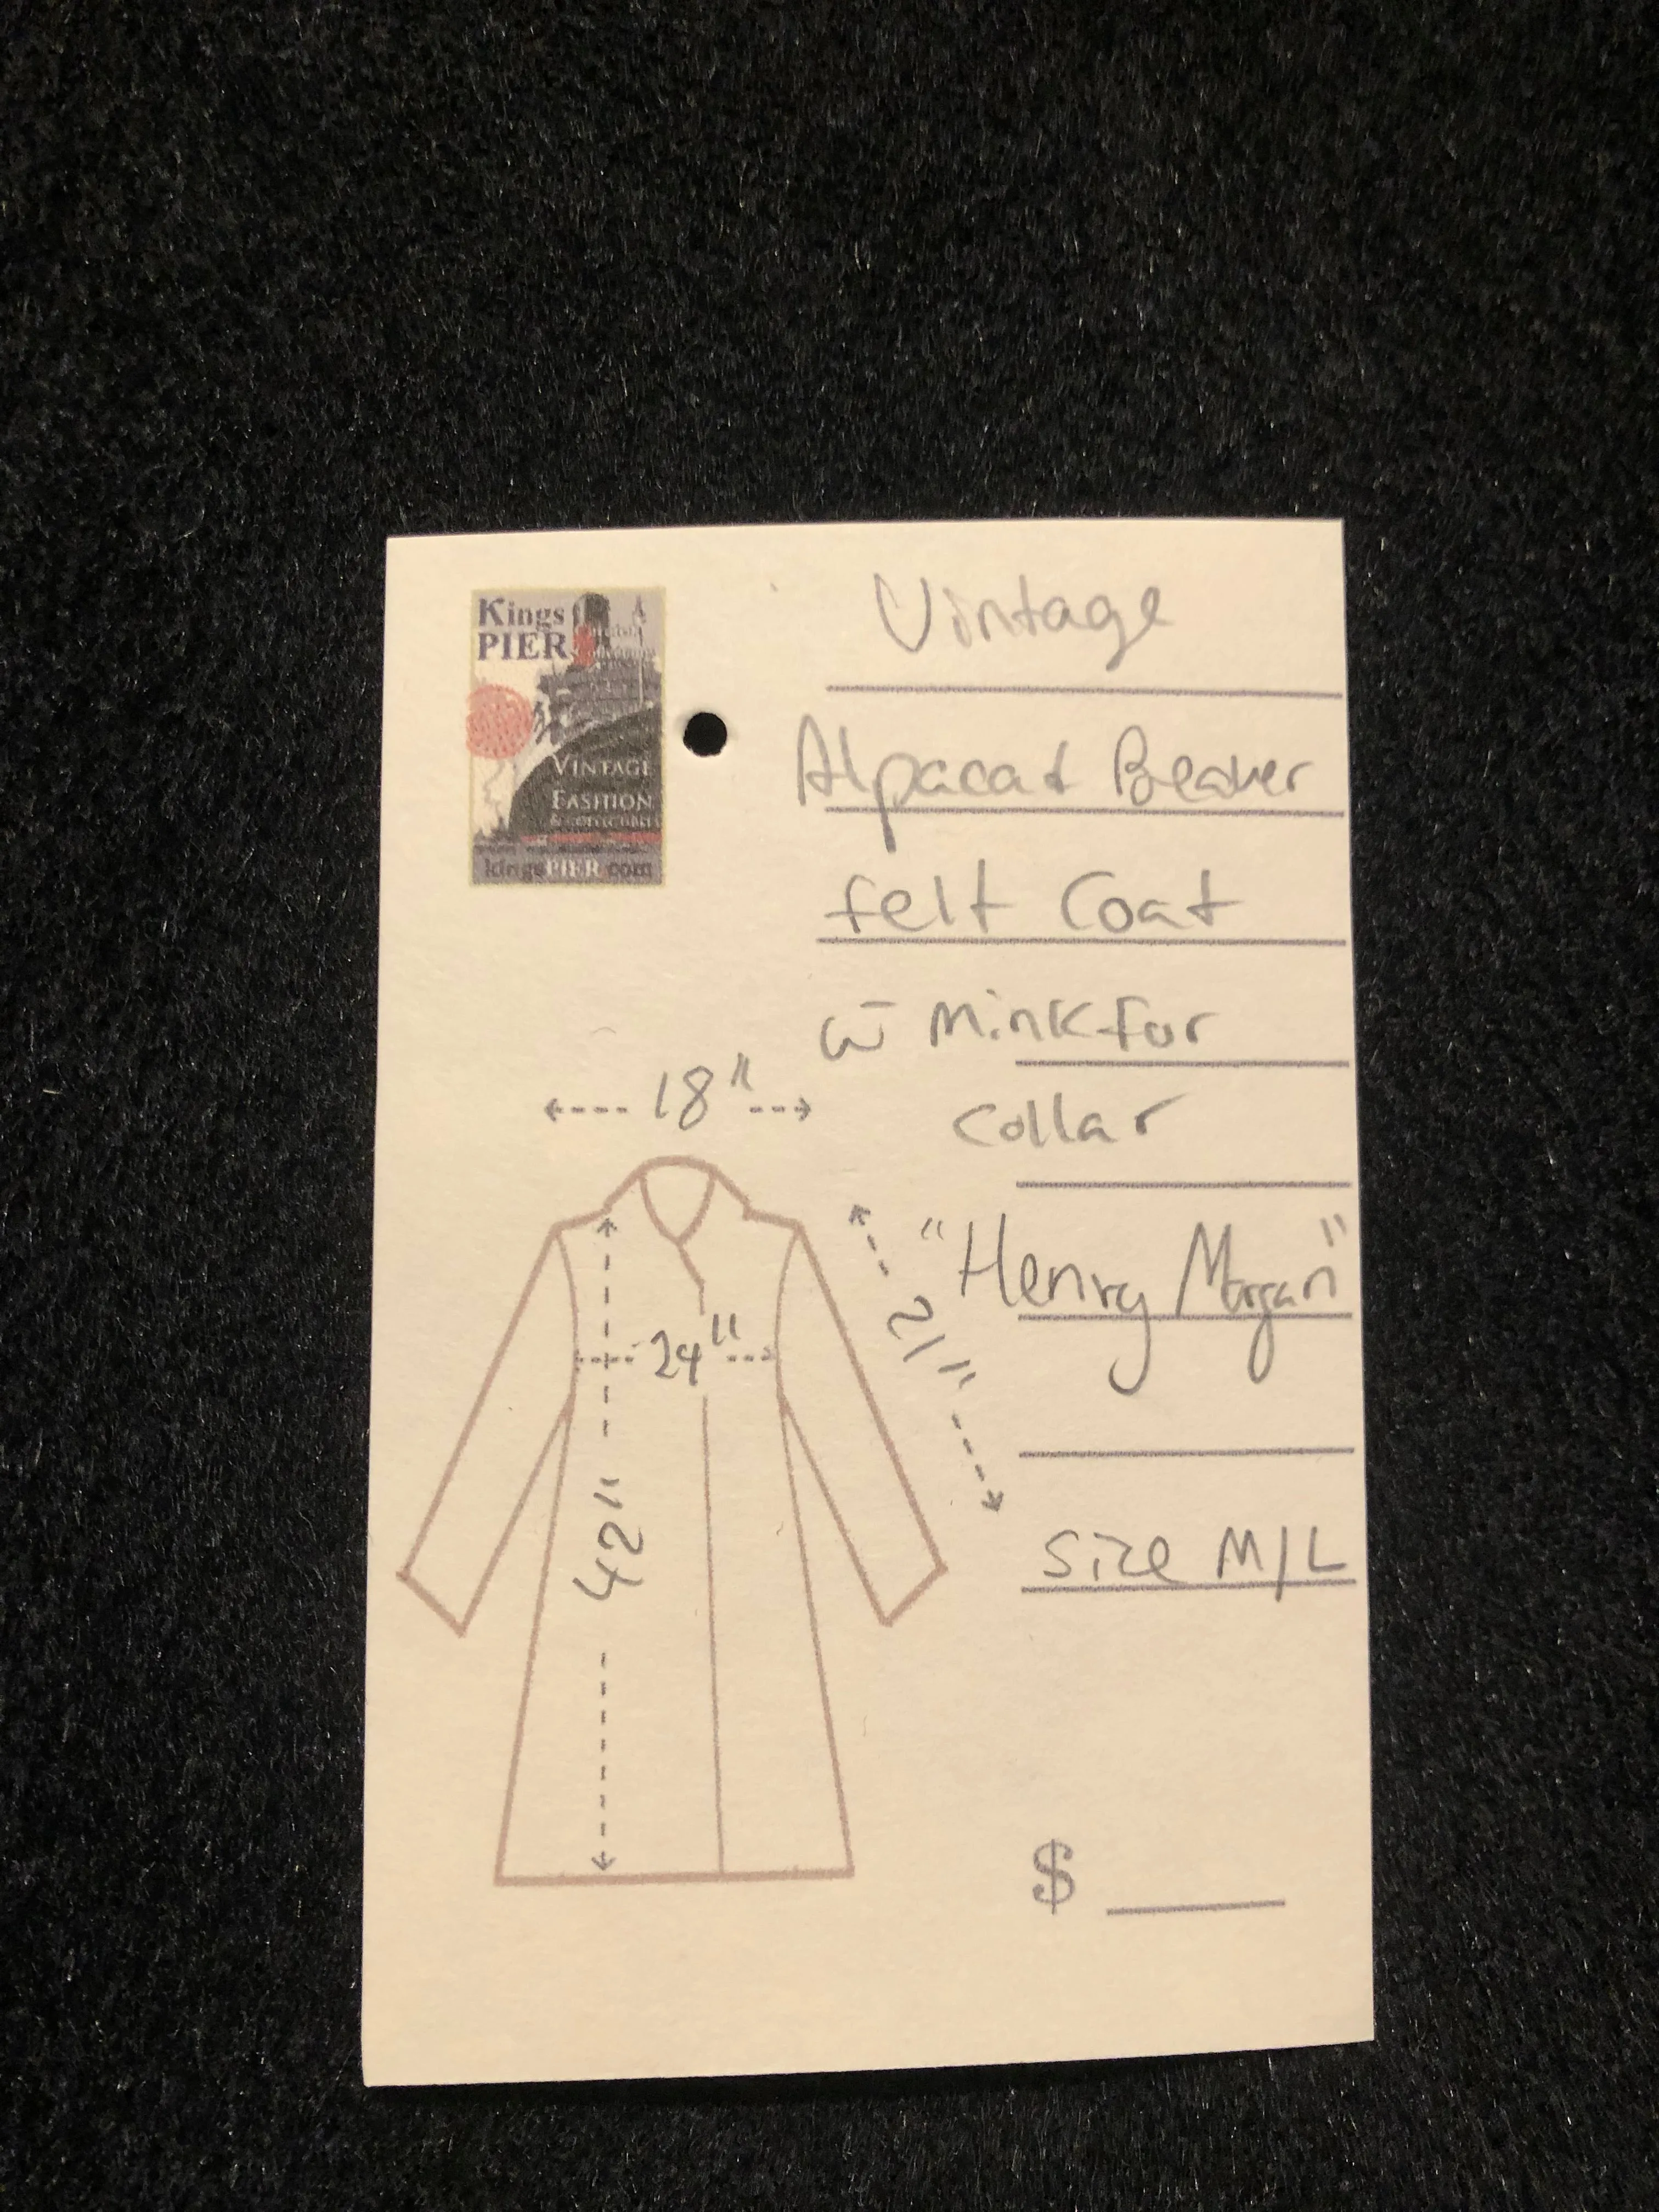 Kings
PIER
VINTAGE
FASHION
& COLLECTIBLES
kingsPIER.com
Vintage
Alpaca & Beaver
felt Coat
w̄ Mink fur
Collar
"Henry Morgan"
Size M/L
18"
24"
21"
42"
$